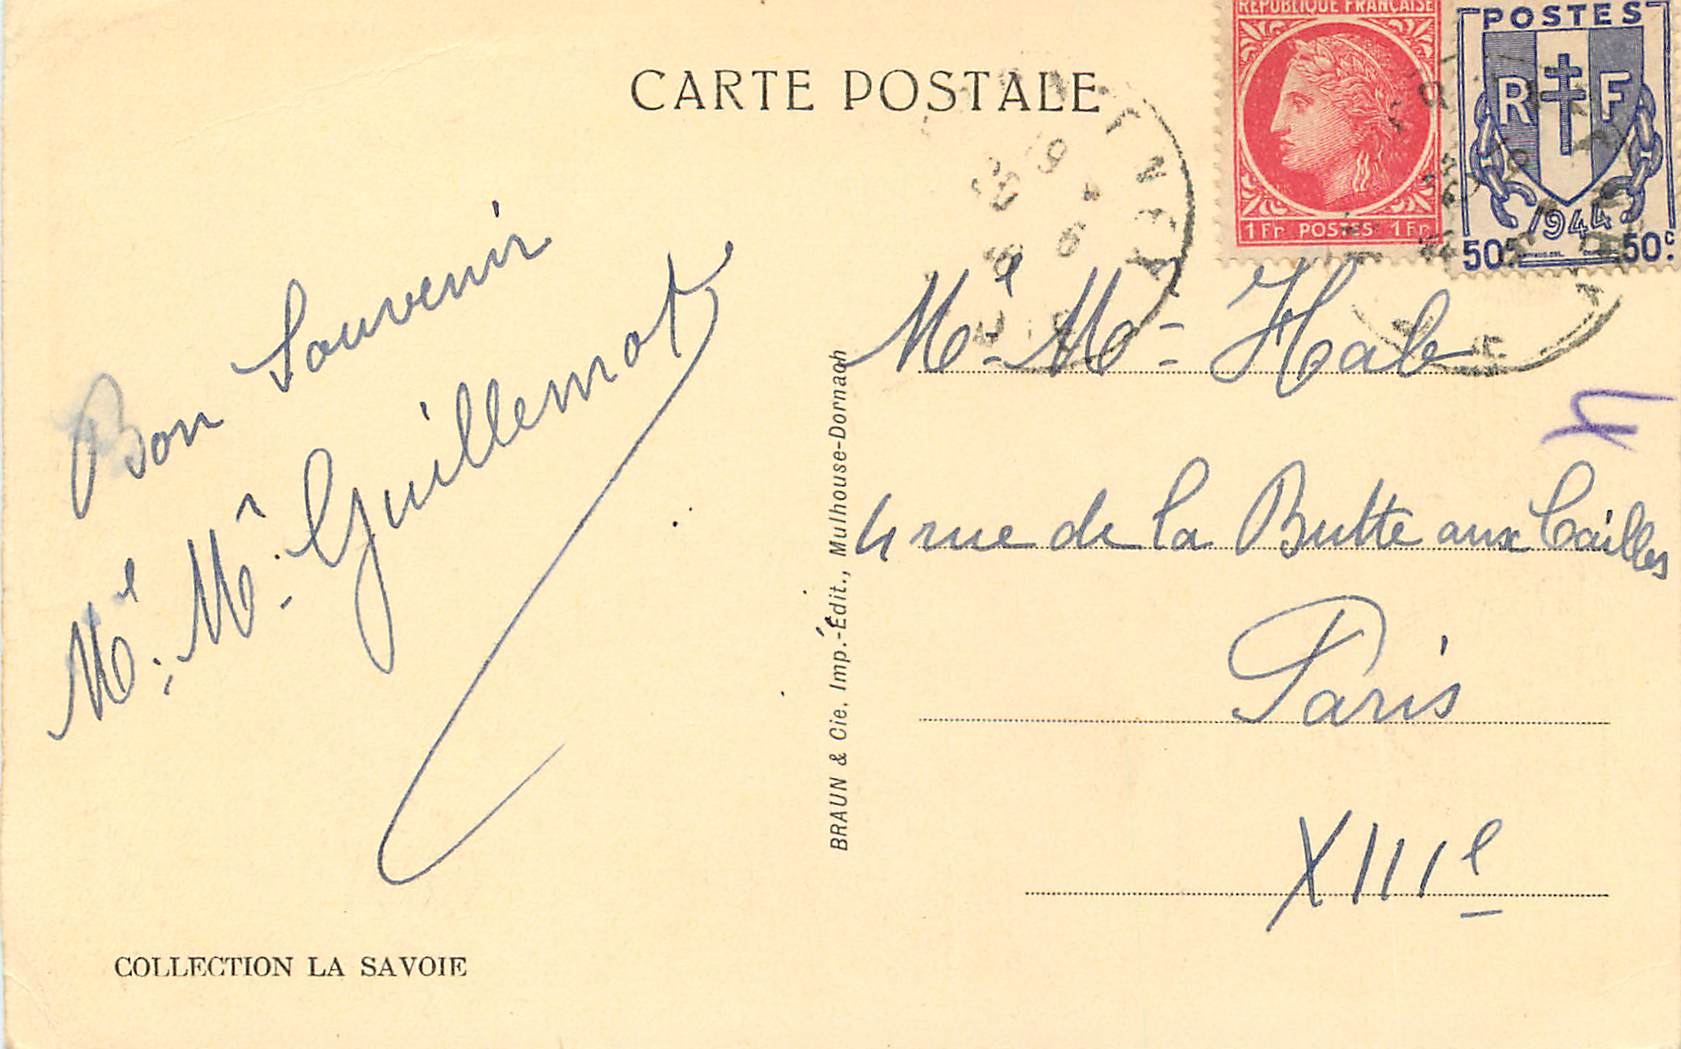 CARTE POSTALE
REPUBLIQUE FRANÇAISE
1 Fr POSTES 1 Fr
POSTES
R F
1944
50c 50c
Bon Souvenir
Me. Mr. Guillemot
Me. Mr. Hab
4 rue de la Butte aux Cailles
Paris
XIIIe
BRAUN & Cie, Imp.-Édit., Mulhouse-Dornach
COLLECTION LA SAVOIE